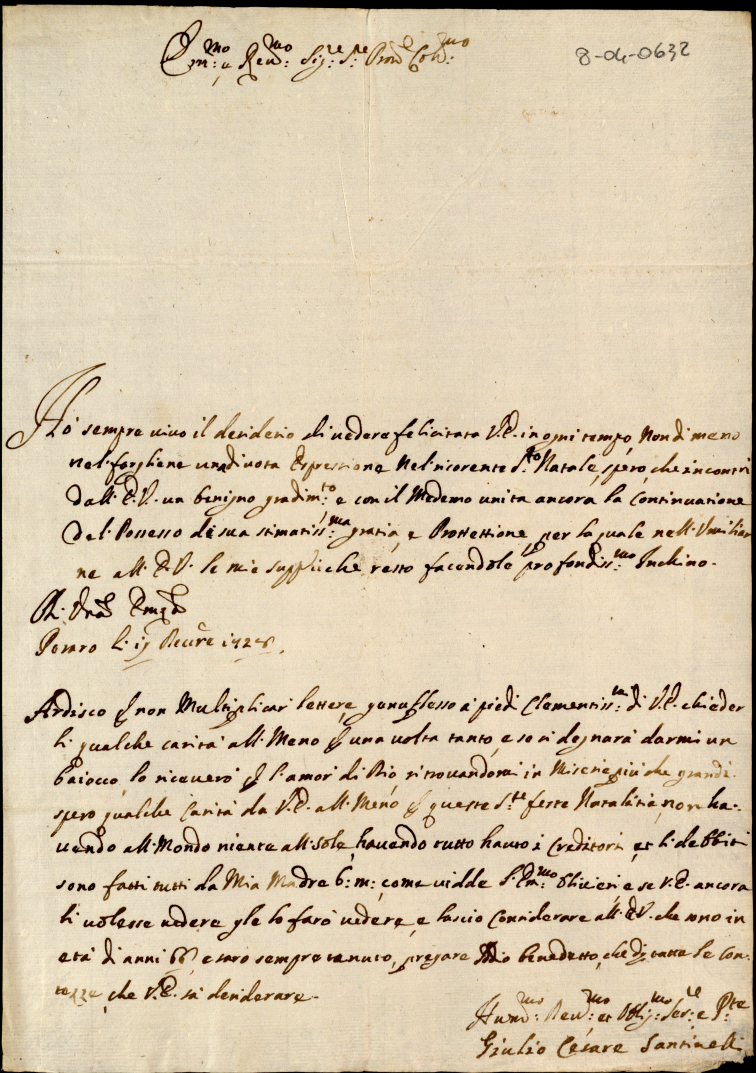 Em:mo e Reu:mo Sig:re S:re Pron:e Col:mo
8-04-0632
Hò sempre uiuo il desiderio di uedere felicitata V.E. in ogni tempo, Non di meno
nel forgliene una diuota Espressione Nel ricorente S:to Natale, spero, che incontri
dall'E.V. un benigno gradim:to e con il Medemo unita ancora la Continuatione
del Possesso di sua stimatiss:ma gratia, e Protettione, per la quale nell'Vmiliar
ne all'E.V. le mie suppliche resto facendole profondiss:mo Inchino.
Di Vra Emza
Pesaro li 19 Decre 1728.
Ardisco p non Multiplicar lettere, genuflesso a piedi Clementiss:mi di V.E. chieder
li qualche carità all'Meno p una uolta tanto, e se si degnarà darmi un
baiocco lo riceuerò p l'amor di Dio, ritrouandomi in Miserie più che grandi
spero qualche Carità da V.E. all'Meno p queste S:te feste Natalitie, non ha-
uendo all'Mondo niente all'sole, hauendo tutto hauto i Creditori, et li debbiti
sono fatti tutti da Mia Madre b:m: come uidde l'Em:mo Oliuieri, e se V.E. ancora
li uolesse uedere glie lo farò uedere, e lascio Considerare all'E.V. che sono in
età di anni 66 e sarò sempre tenuto, pregare Dio benedetto, che di tutte le Con-
tezze, che V.E. sà desiderare.
Hum:mo Deu:mo et Obb:mo Ser:e e P:te
Giulio Cesare Santinelli